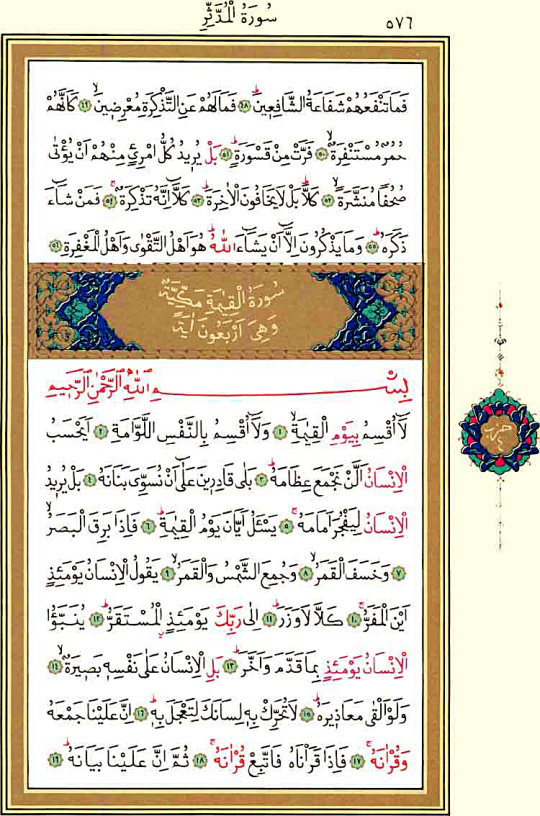 سُورَةُ الْمُدَّثِّرِ
٥٧٦
فَمَا تَنْفَعُهُمْ شَفَاعَةُ الشَّافِعِينَۜ ﴿٤٨﴾ فَمَا لَهُمْ عَنِ التَّذْكِرَةِ مُعْرِضِينَۙ ﴿٤٩﴾ كَاَنَّهُمْ
حُمُرٌ مُسْتَنْفِرَةٌۙ ﴿٥٠﴾ فَرَّتْ مِنْ قَسْوَرَةٍۜ ﴿٥١﴾ بَلْ يُرِيدُ كُلُّ امْرِئٍ مِنْهُمْ اَنْ يُؤْتٰى
صُحُفًا مُنَشَّرَةًۙ ﴿٥٢﴾ كَلَّاۜ بَلْ لَا يَخَافُونَ الْاٰخِرَةَۜ ﴿٥٣﴾ كَلَّٓا اِنَّهُ تَذْكِرَةٌۚ ﴿٥٤﴾ فَمَنْ شَٓاءَ
ذَكَرَهُۜ ﴿٥٥﴾ وَمَا يَذْكُرُونَ اِلَّٓا اَنْ يَشَٓاءَ اللّٰهُۜ هُوَ اَهْلُ التَّقْوٰى وَاَهْلُ الْمَغْفِرَةِ ﴿٥٦﴾
سُورَةُ الْقِيٰمَةِ مَكِّيَّةٌ
وَهِيَ اَرْبَعُونَ اٰيَةً
بِسْمِ اللّٰهِ الرَّحْمٰنِ الرَّحِيمِ
لَٓا اُقْسِمُ بِيَوْمِ الْقِيٰمَةِۙ ﴿١﴾ وَلَٓا اُقْسِمُ بِالنَّفْسِ اللَّوَّامَةِ ﴿٢﴾ اَيَحْسَبُ
الْاِنْسَانُ اَلَّنْ نَجْمَعَ عِظَامَهُۜ ﴿٣﴾ بَلٰى قَادِرِينَ عَلٰٓى اَنْ نُسَوِّيَ بَنَانَهُ ﴿٤﴾ بَلْ يُرِيدُ
الْاِنْسَانُ لِيَفْجُرَ اَمَامَهُۚ ﴿٥﴾ يَسْـَٔلُ اَيَّانَ يَوْمُ الْقِيٰمَةِۜ ﴿٦﴾ فَاِذَا بَرِقَ الْبَصَرُۙ
﴿٧﴾ وَخَسَفَ الْقَمَرُۙ ﴿٨﴾ وَجُمِعَ الشَّمْسُ وَالْقَمَرُۙ ﴿٩﴾ يَقُولُ الْاِنْسَانُ يَوْمَئِذٍ
اَيْنَ الْمَفَرُّۚ ﴿١٠﴾ كَلَّا لَا وَزَرَۜ ﴿١١﴾ اِلٰى رَبِّكَ يَوْمَئِذٍۨ الْمُسْتَقَرُّۜ ﴿١٢﴾ يُنَبَّؤُا
الْاِنْسَانُ يَوْمَئِذٍ بِمَا قَدَّمَ وَاَخَّرَۜ ﴿١٣﴾ بَلِ الْاِنْسَانُ عَلٰى نَفْسِهِ بَصِيرَةٌۙ ﴿١٤﴾
وَلَوْ اَلْقٰى مَعَاذِيرَهُۜ ﴿١٥﴾ لَا تُحَرِّكْ بِهِ لِسَانَكَ لِتَعْجَلَ بِهِۜ ﴿١٦﴾ اِنَّ عَلَيْنَا جَمْعَهُ
وَقُرْاٰنَهُۚ ﴿١٧﴾ فَاِذَا قَرَأْنَاهُ فَاتَّبِعْ قُرْاٰنَهُۚ ﴿١٨﴾ ثُمَّ اِنَّ عَلَيْنَا بَيَانَهُۜ ﴿١٩﴾